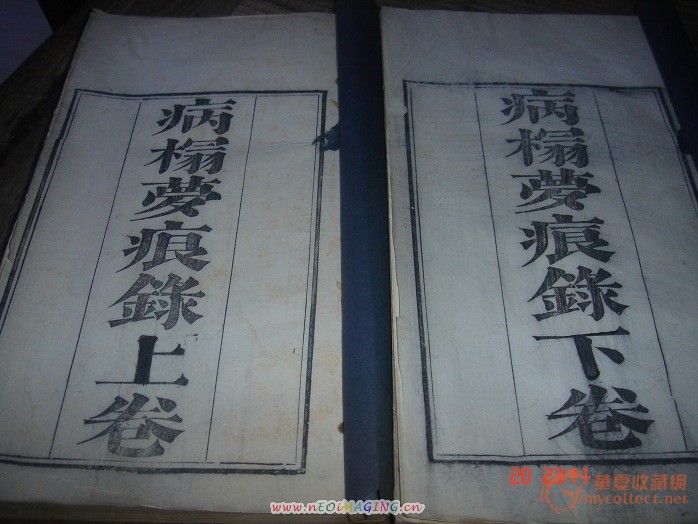 病榻夢痕錄上卷
病榻夢痕錄下卷
華夏收藏網
mycollect.net
www.nEOiMAGING.cn